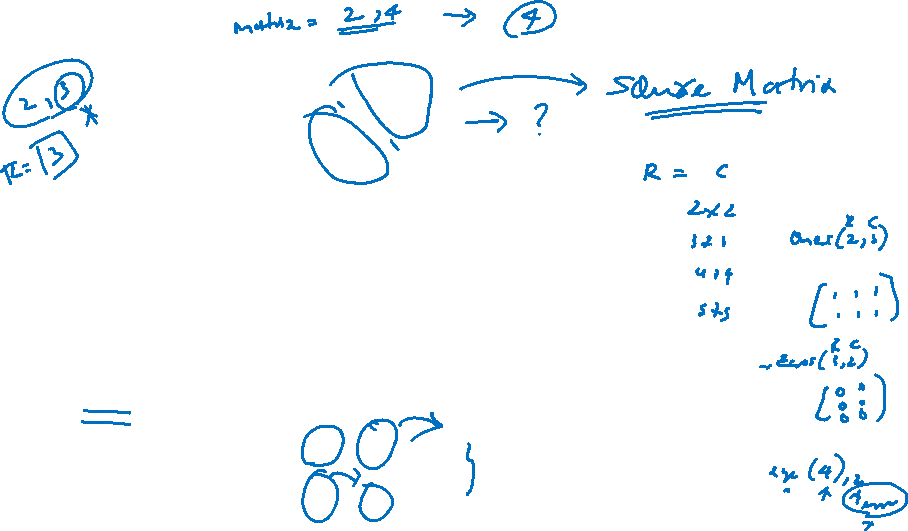 Matrix = 2,4 → 4
2,3
R = 3
Square Matrix
→ ?
R = C
2x2
3x3
4x4
5x5
R C
ones(2,3)
[1 1 1
1 1 1]
R C
zeros(3,2)
[0 0
0 0
0 0]
eye(4)